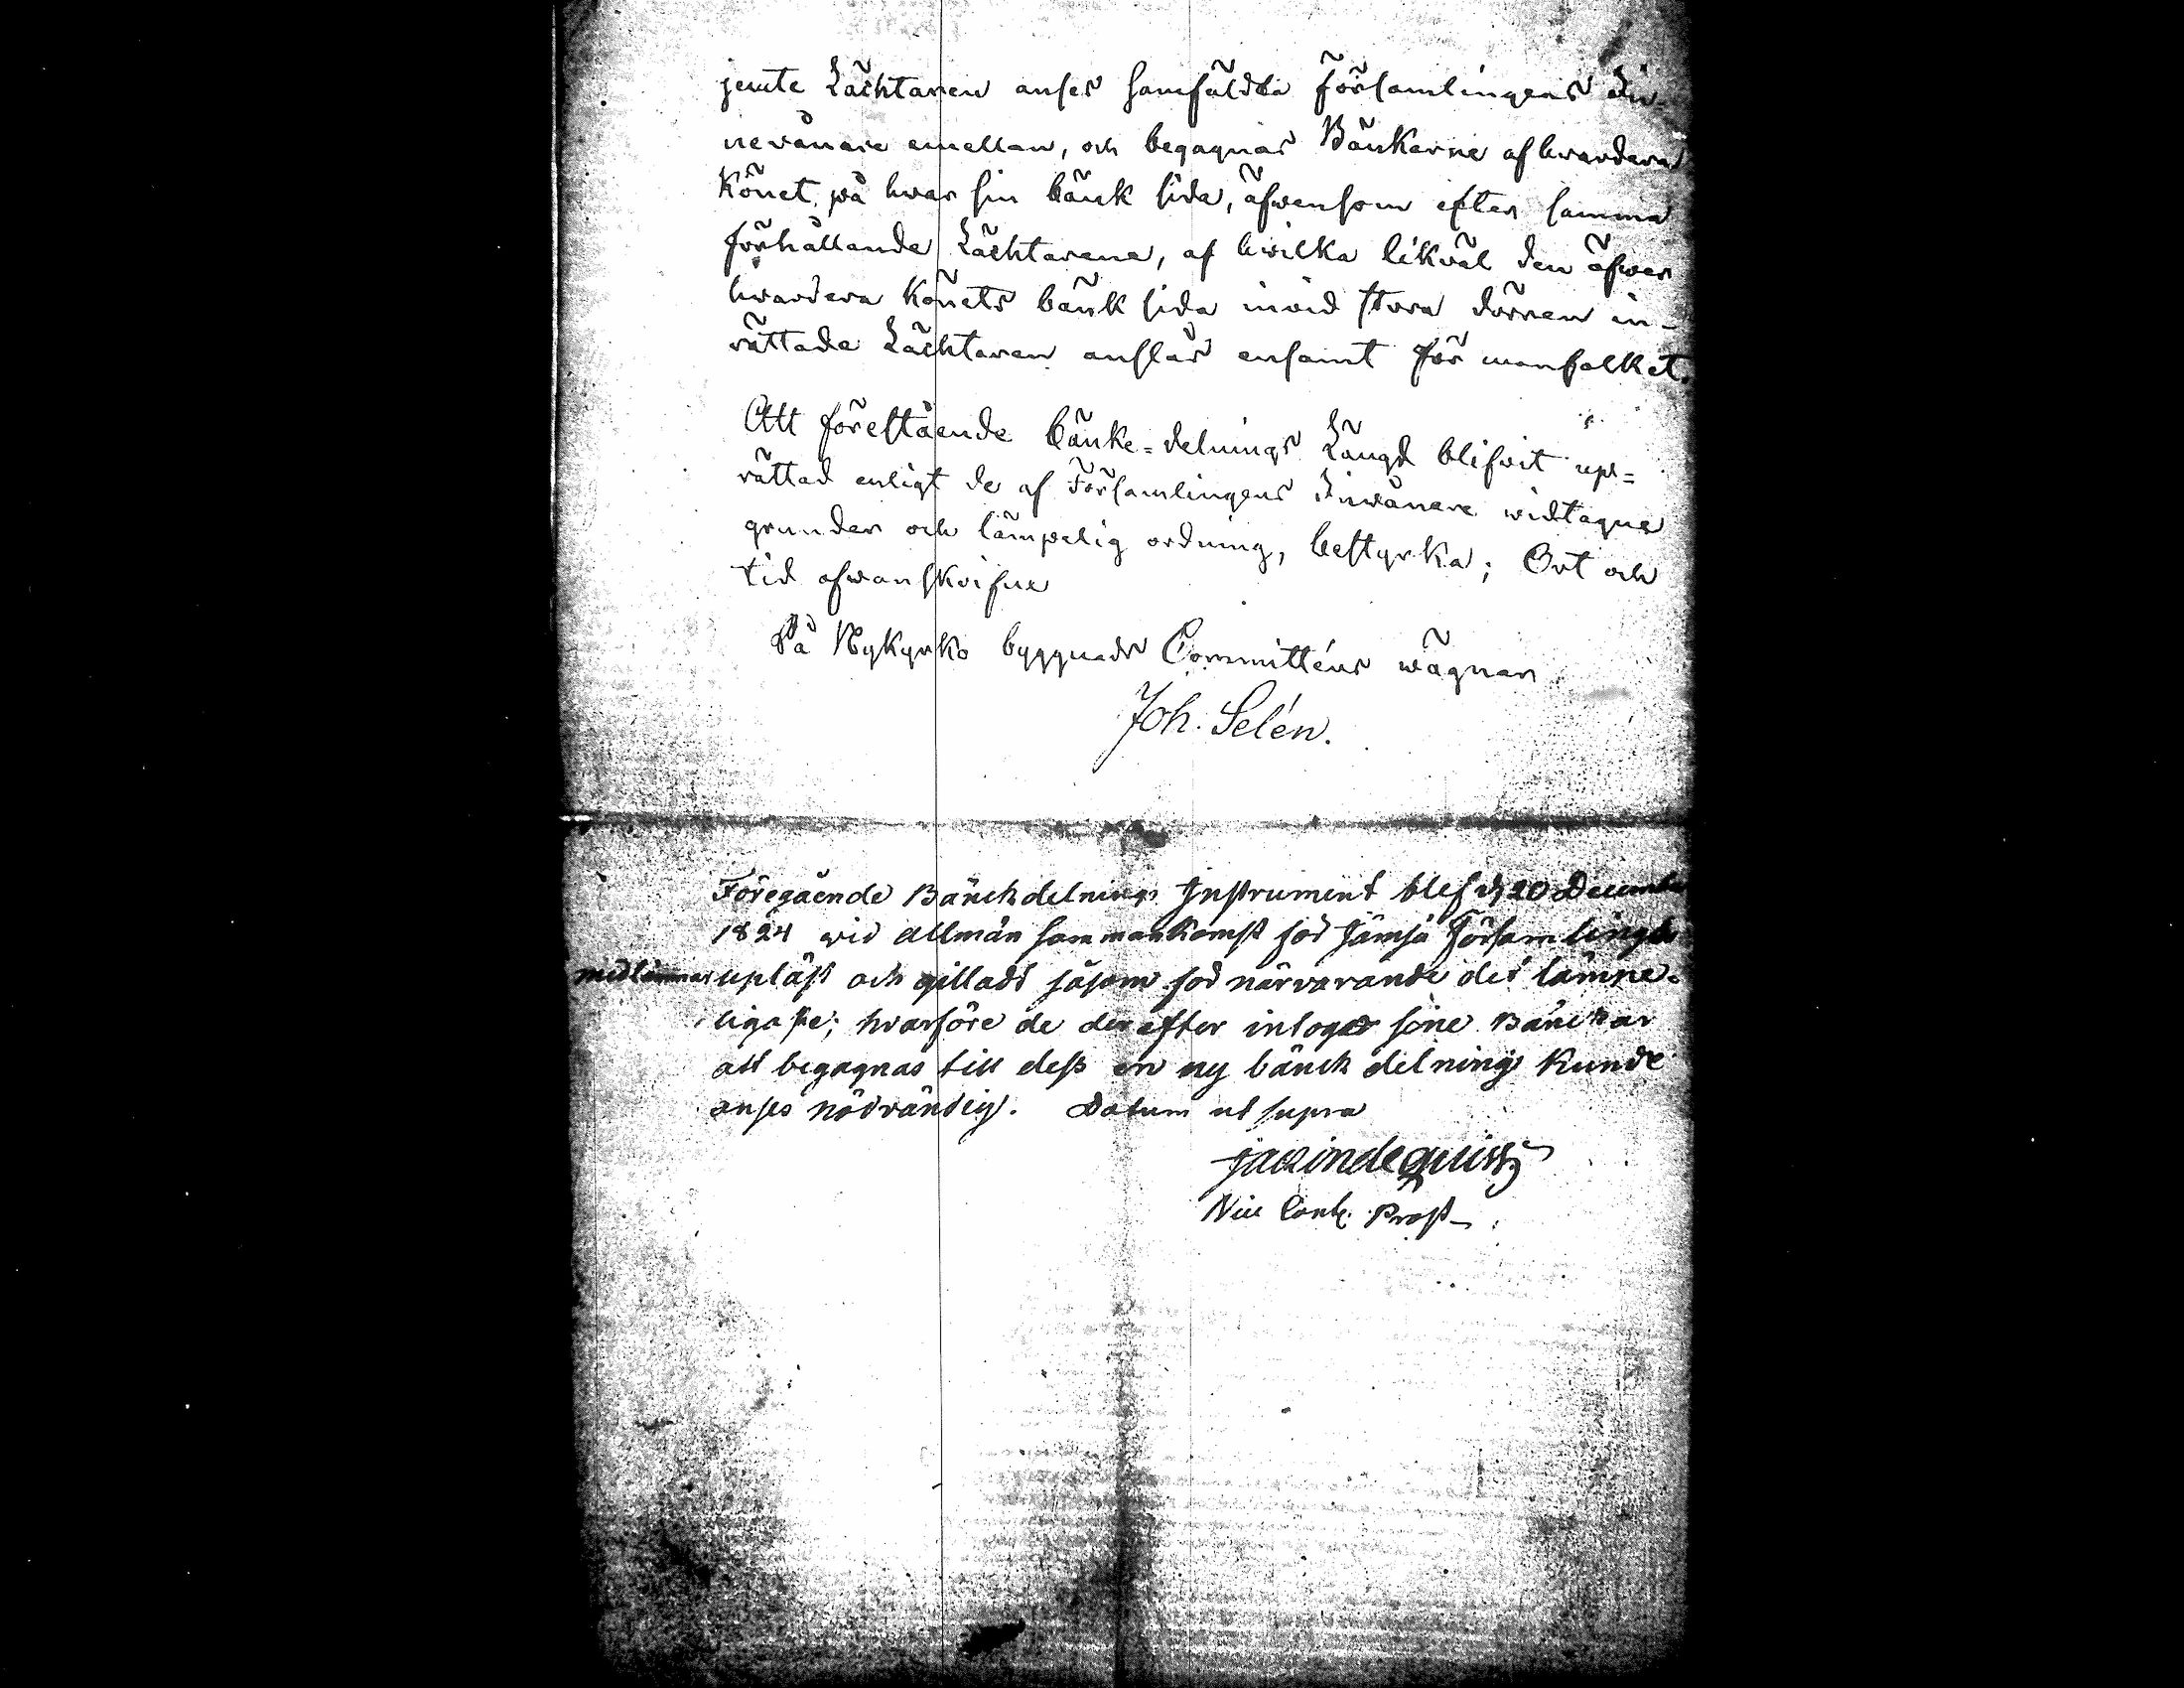 jemte Lächtaren anses samfäldta församlingens In-
nevånare emellan, och begagnas Bänkarne af hvardera
Könet på hvar sin bänk sida, äfwensom efter samma
förhållande Lächtarena, af hwilka likväl den öfwer
hvardera Könets bänk sida invid stora dörren in-
rättade Lächtaren anslås ensamt för manfolket.
Att förestående bänke-delnings Längd blifvit upp=
rättad enligt de af Församlingens Inwånare widtagne
grunder och lämpelig ordning, bestyrka; Ort och
tid ofwanskrifne
På Nykyrko byggnads Committéns wägnar
Joh. Selén.
Föregående Bänckdelnings Instrument blef d. 20 December
1824 wid allmän sammankomst för Jämsä Församlings
medlemmar upläst och gilladt såsom för närvarande det lämpe-
ligaste; hvarföre de derefter intoge sine Bänckar
att begagnas till dess en ny bänck delning kunde
anses nödvändig. Datum ut supra
Vice Cont. Prost